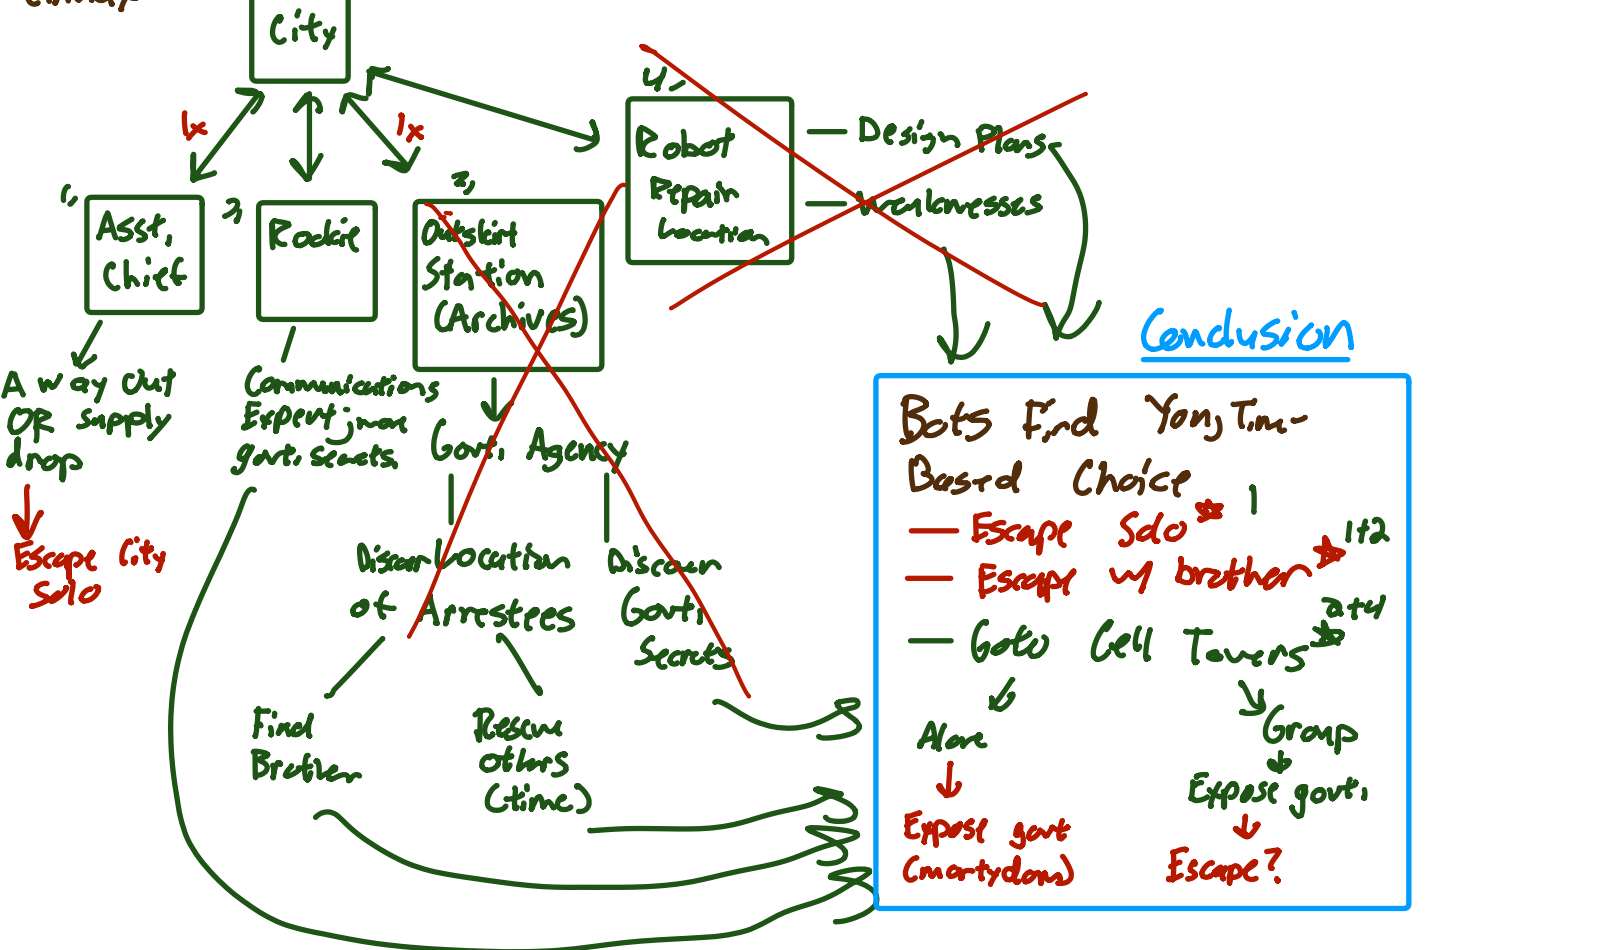 City
1x
1x
1.
Asst.
Chief
3,
Rookie
2,
Outskirt
Station
(Archives)
4.
Robot
Repair
Location
Design Plans
Weaknesses
A way out
OR supply
drop
Escape City
Solo
Communications
Expert; more
govt. secrets
Govt. Agency
Discover location
of Arrestees
Discover
Govt.
Secrets
Find
Brother
Rescue
others
(time)
Conclusion
Bots Find You, Time
Based Choice
Escape Solo * 1
Escape w/ brother * 1+2
Go to Cell Towers *
Alone
Expose govt
(martyrdom)
Group
Expose govt.
Escape?